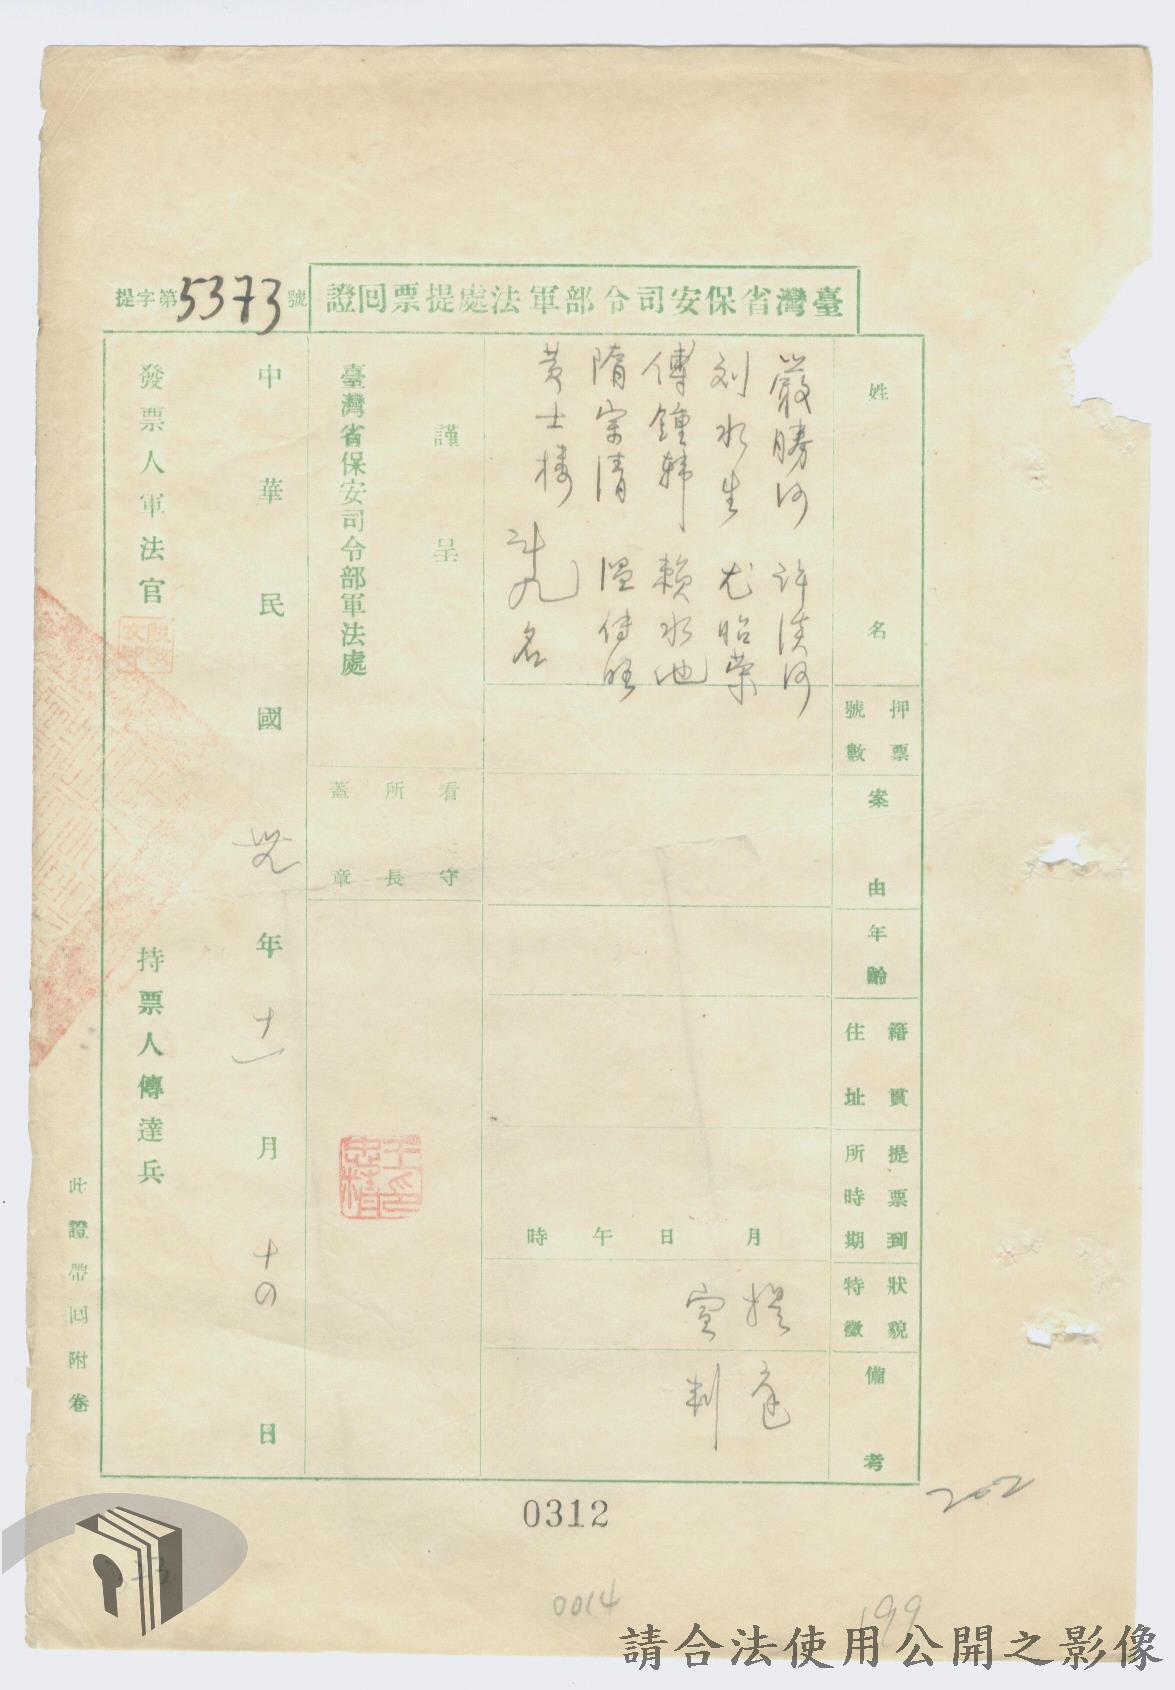 臺灣省保安司令部軍法處提票回證
提字第5373號
姓名
押票號數
案由
年齡
籍貫住址
提票到所時期
狀貌特徵
備考
嚴勝河 許漢河
刘水生 尤昭榮
傅鍾耕 賴水池
隋宗清 溫傳旺
黃士樓
計九名
月 日 午 時
提庭
宣判
謹呈
臺灣省保安司令部軍法處
看守所長蓋章
中華民國卅九年十一月十四日
發票人軍法官
持票人傳達兵
此證帶回附卷
0312
202
0014
199
請合法使用公開之影像